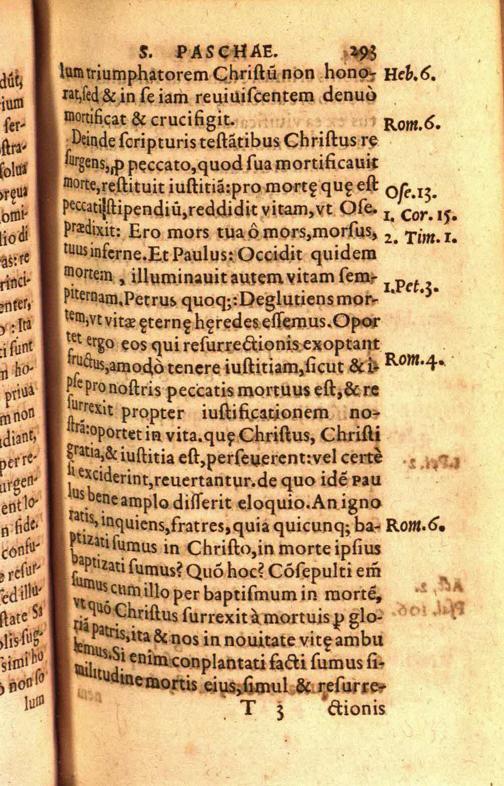 S. PASCHAE. 293
lum triumphatorem Christū non hono-
rat, sed & in se iam reuiuiscentem denuò
mortificat & crucifigit.
Deinde scripturis testātibus Christus re
surgens, ꝓ peccato, quod sua mortificauit
morte, restituit iustitiā: pro mortę quę est
peccati stipendiū, reddidit vitam, vt Ose.
prædixit: Ero mors tua ô mors, morsus,
tuus inferne. Et Paulus: Occidit quidem
mortem, illuminauit autem vitam sem-
piternam. Petrus quoq;: Deglutiens mor-
tem, vt vitæ ęternę hęredes essemus. Opor
tet ergo eos qui resurrectionis exoptant
fructus, amodò tenere iustitiam, sicut & i-
pse pro nostris peccatis mortuus est, & re
surrexit propter iustificationem no-
strā: oportet in vita. quę Christus, Christi
gratia, & iustitia est, perseuerent: vel certè
si exciderint, reuertantur. de quo idē PAU
lus bene amplo disserit eloquio. An igno
ratis, inquiens, fratres, quia quicunq; ba-
ptizati sumus in Christo, in morte ipsius
baptizati sumus? Quō hoc? Cōsepulti em̄
sumus cum illo per baptismum in mortē,
vt quō Christus surrexit à mortuis ꝑ glo-
riā patris, ita & nos in nouitate vitę ambu
lemus. Si enim conplantati facti sumus si-
militudine mortis eius, simul & resurre-
T 3 ctionis
Heb. 6.
Rom. 6.
Ose. 13.
1. Cor. 15.
2. Tim. 1.
1. Pet. 3.
Rom. 4.
Rom. 6.
dūt,
rium
fer-
stra-
solua
orę́ua
omi-
lio di
as: re
rinci-
enter,
o: Ita
ti sunt
n ho-
priua
m non
diant,
per re-
urgen-
ent lo-
n fide.
confu-
e resur-
sed illu-
state Sa
olis sug-
simi ho
non so
lum